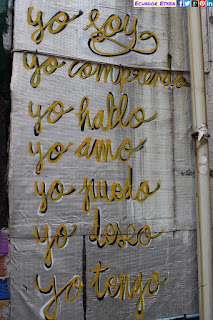 ECUADOR ETXEA
yo soy
yo comprendo
yo hablo
yo amo
yo puedo
yo deseo
yo tengo